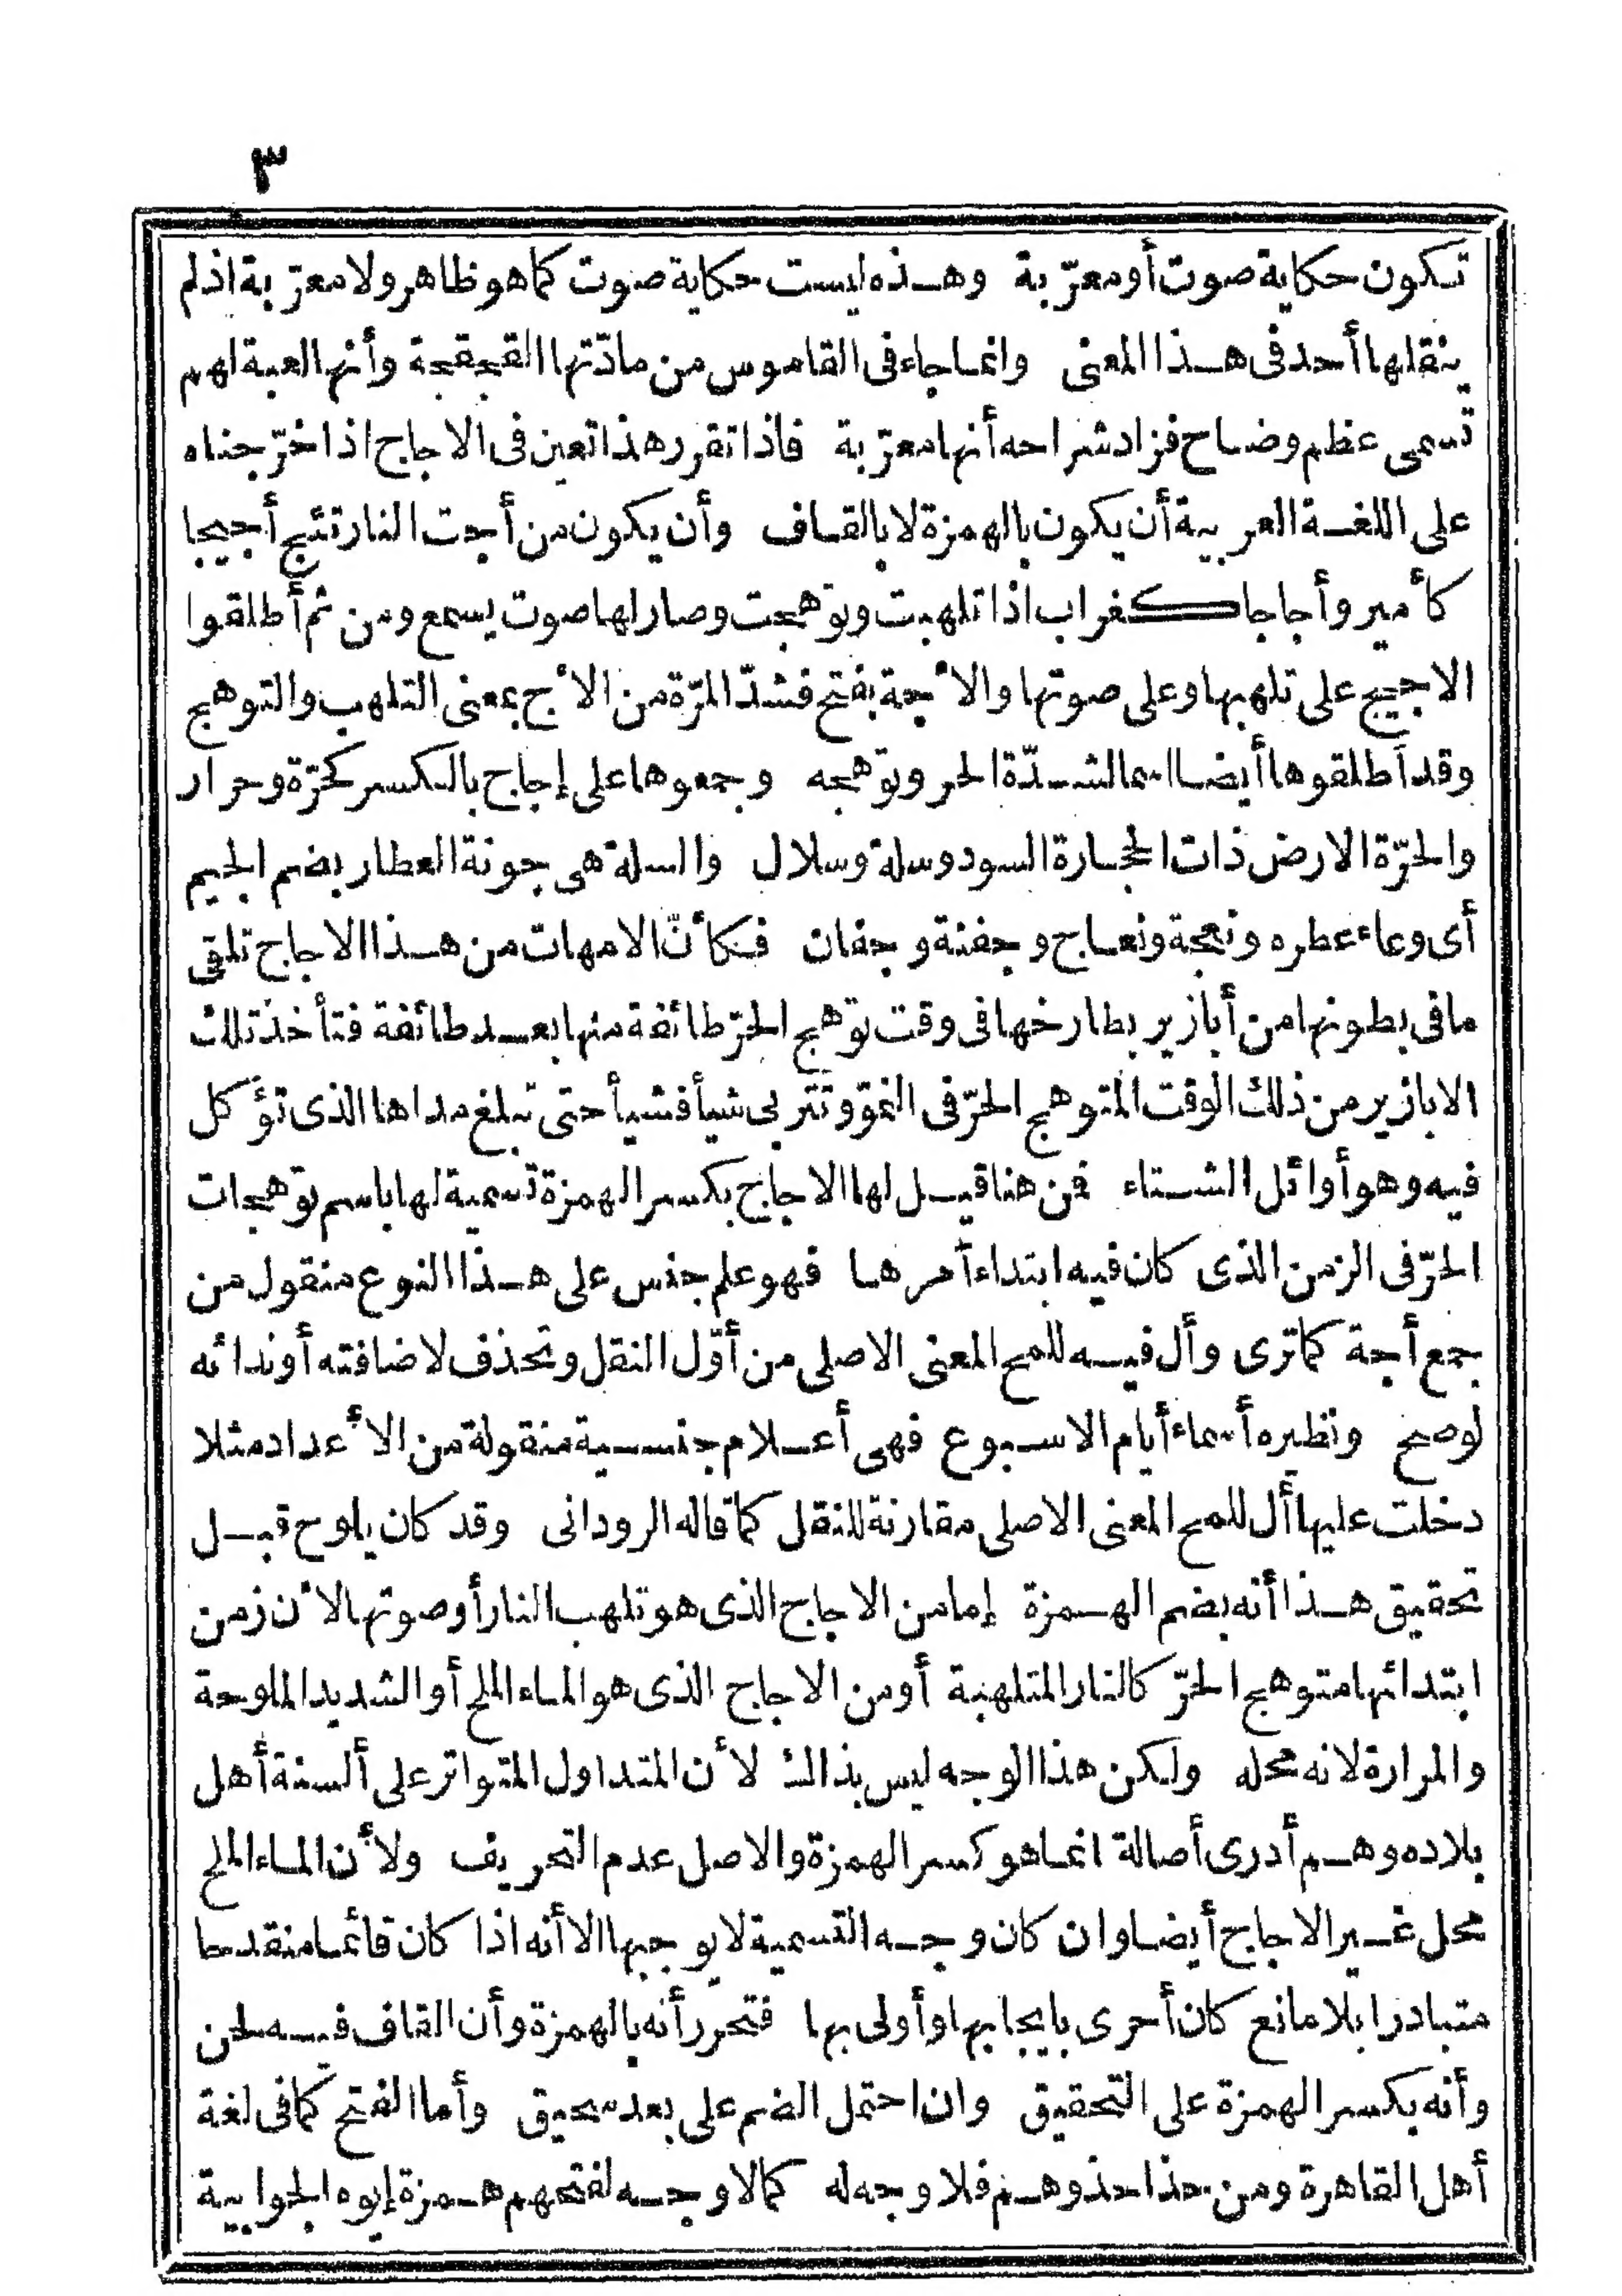 ٣
تكون حكاية صوت أو معرّبة وهذه ليست حكاية صوت كما هو ظاهر ولا معرّبة اذ لم
ينقلها أحد فى هذا المعنى وانما جاء فى القاموس من مادّتها القجقجة وأنها لعبة لهم
تسمى عظم وضاح فزاد شراحه أنها معرّبة فاذا تقرر هذا تعين فى الاجاج اذا خرّجناه
على اللغة العربية أن يكون بالهمزة لا بالقاف وأن يكون من أجت النار تئج أجيجا
كأمير وأجاجا كغراب اذا تلهبت وتوّهجت وصار لها صوت يسمع ومن ثم أطلقوا
الاجيج على تلهبها وعلى صوتها والأجة بفتح فشدّ المرّة من الأج بمعنى التلهب والتوهج
وقد أطلقوها أيضا اسما لشدّة الحر وتوّهجه وجمعوها على إجاج بالكسر كحرّة وحرار
والحرّة الارض ذات الحجارة السود وسلة وسلال والسلة هى جونة العطار بضم الجيم
أى وعاء عطره ونعجة ونعاج وجفنة وجفان فكأنّ الامهات من هذا الاجاج تلقى
ما فى بطونها من أبازير بطارخها فى وقت توّهج الحرّ طائفة منها بعد طائفة فتأخذ تلك
الابازير من ذلك الوقت المتوهج الحرّ فى النموّ وتتربى شيأ فشيأ حتى تبلغ مداها الذى تؤكل
فيه وهو أوائل الشتاء فمن هنا قيل لها الاجاج بكسر الهمزة تسمية لها باسم توّهجات
الحرّ فى الزمن الذى كان فيه ابتداء أمرها فهو علم جنس على هذا النوع منقول من
جمع أجة كما ترى وأل فيه للمح المعنى الاصلى من أوّل النقل وتحذف لاضافته أو ندائه
لو صح ونظيره أسماء أيام الاسبوع فهى أعلام جنسية منقولة من الأعداد مثلا
دخلت عليها أل للمح المعنى الاصلى مقارنة للنقل كما قاله الرودانى وقد كان يلوح قبل
تحقيق هذا أنه بضم الهمزة إما من الاجاج الذى هو تلهب النار أو صوتها لأن زمن
ابتدائها متوهج الحرّ كالنار المتلهبة أو من الاجاج الذى هو الماء الملح أو الشديد الملوحة
والمرارة لانه محله ولكن هذا الوجه ليس بذاك لأن المتداول المتواتر على ألسنة أهل
بلاده وهم أدرى أصالة انما هو كسر الهمزة والاصل عدم التحريف ولأن الماء الملح
محل غير الاجاج أيضا وان كان وجه التسمية لا يوجبها الا أنه اذا كان قائما منقدحا
متبادرا بلا مانع كان أحرى بايجابها وأولى بها فتحرر أنه بالهمزة وأن القاف فيه لحن
وأنه بكسر الهمزة على التحقيق وان احتمل الضم على بعد سحيق وأما الفتح كما فى لغة
أهل القاهرة ومن حذا حذوهم فلا وجه له كما لا وجه لفتحهم همزة إيوه الجوابية